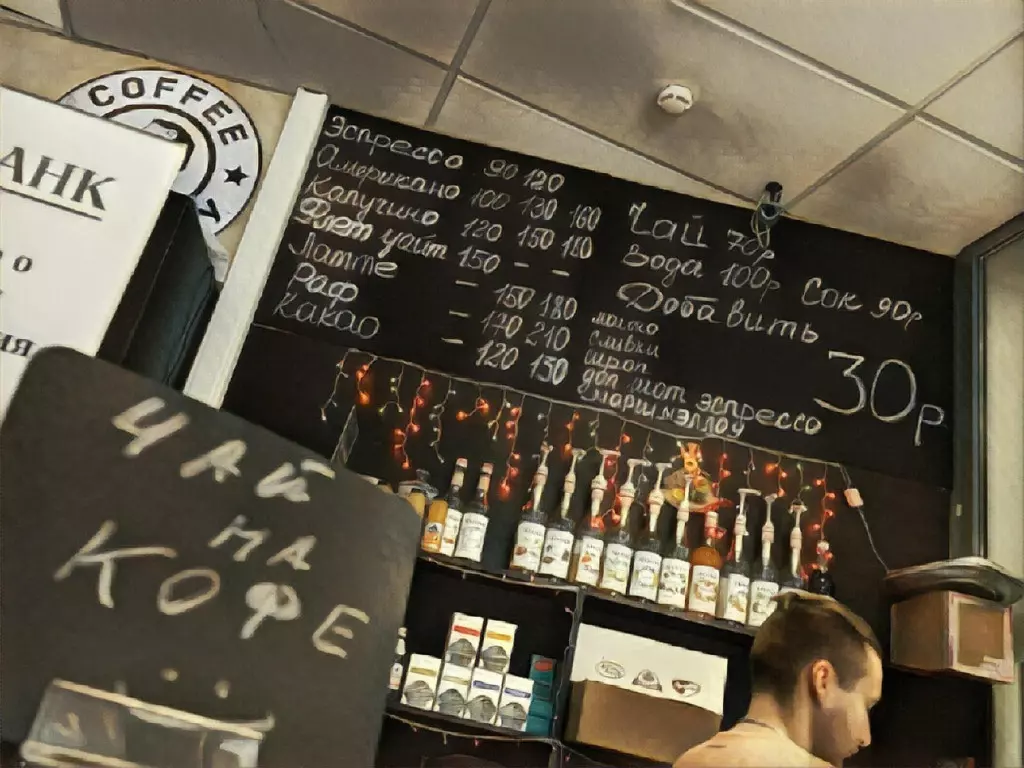 COFFEE
АНК
Эспрессо 90 120
Американо 100 130 160
Капучино 120 150 180
Флет уайт 150 - -
Латте - 150 180
Раф - 170 210
Какао - 120 150
Чай 70р
Вода 100р Сок 90р
Добавить
молоко
сливки
сироп
доп шот эспрессо
маршмэллоу
30р
ЧАЙ
НА
КОФЕ